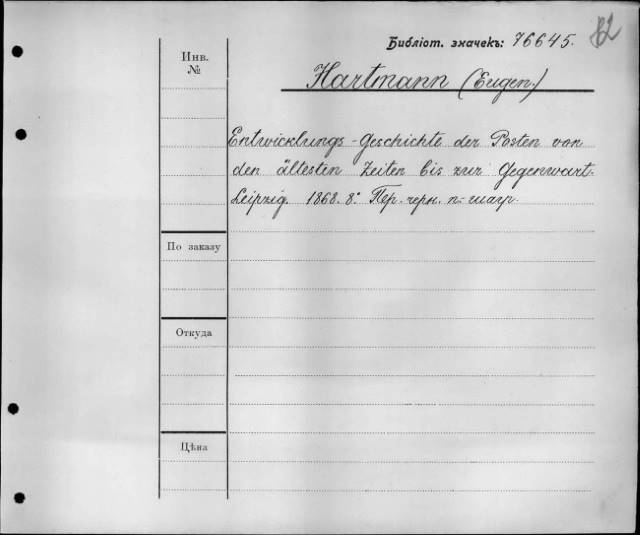 Библіот. значекъ: 76645.
82
Инв.
№
Hartmann (Eugen.)
Entwicklungs-Geschichte der Posten von
den ältesten Zeiten bis zur Gegenwart.
Leipzig. 1868. 8°. Пер. черн. п-шагр.
По заказу
Откуда
Цѣна